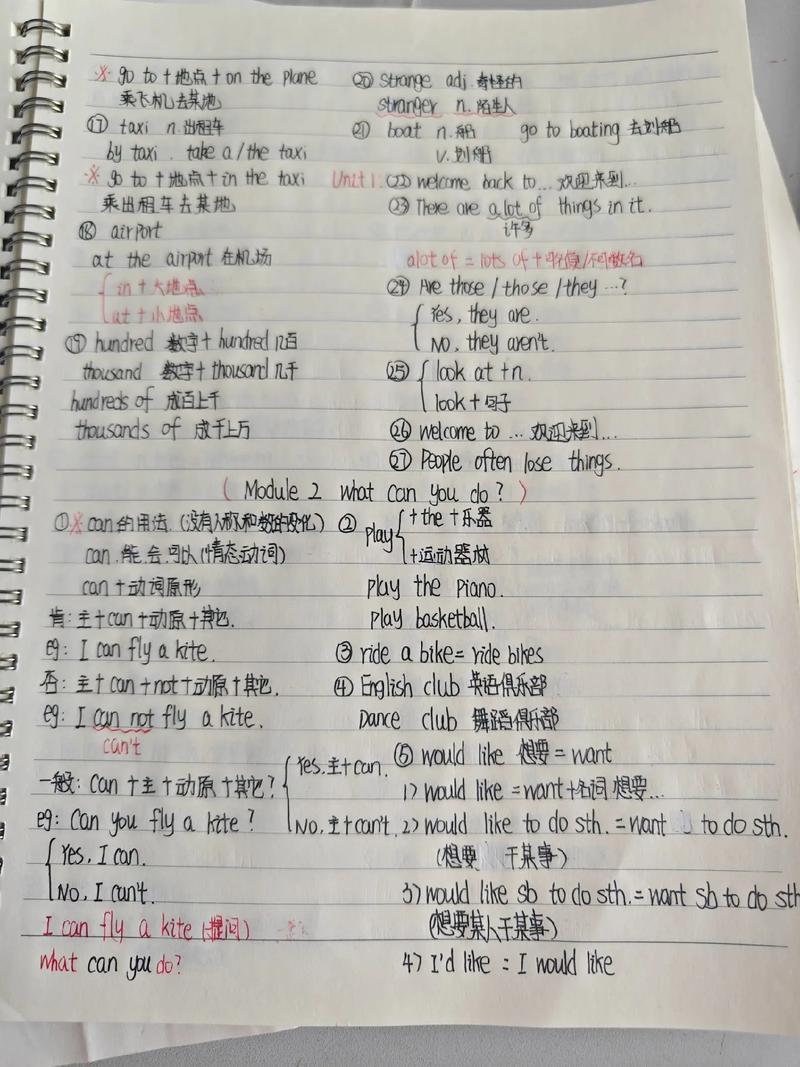 ※ go to + 地点 + on the plane
乘飞机去某地
⑰ taxi n. 出租车
by taxi . take a / the taxi
※ go to + 地点 + in the taxi
乘出租车去某地
⑱ airport
at the airport 在机场
in + 大地点
at + 小地点
⑲ hundred 数字 + hundred 几百
thousand 数字 + thousand 几千
hundreds of 成百上千
thousands of 成千上万
⑳ strange adj. 奇怪的
stranger n. 陌生人
㉑ boat n. 船 go to boating 去划船
v. 划船
Unit 1. ㉒ welcome back to ... 欢迎来到...
㉓ There are a lot of things in it.
许多
a lot of = lots of + 可复/不可数名
㉔ Are those / those / they ...?
Yes, they are.
No, they aren't.
㉕ look at + n.
look + 句子
㉖ welcome to ... 欢迎来到...
㉗ People often lose things.
( Module 2 what can you do? )
① ※ can 的用法. (没有人称和数的变化)
can. 能. 会. 可以 (情态动词)
can + 动词原形
肯: 主 + can + 动原 + 其它.
eg: I can fly a kite.
否: 主 + can + not + 动原 + 其它.
eg: I can not fly a kite.
can't
一般: Can + 主 + 动原 + 其它?
Yes, 主 + can.
No, 主 + can't.
eg: Can you fly a kite?
Yes, I can.
No, I can't.
I can fly a kite (提问)
What can you do?
② play
+ the + 乐器
+ 运动器材
play the piano.
play basketball.
③ ride a bike = ride bikes
④ English club 英语俱乐部
Dance club 舞蹈俱乐部
⑤ would like 想要 = want
1) would like = want + 名词 想要...
2) would like to do sth. = want to do sth.
(想要 干某事)
3) would like sb to do sth. = want sb to do sth
(想要某人干某事)
4) I'd like = I would like